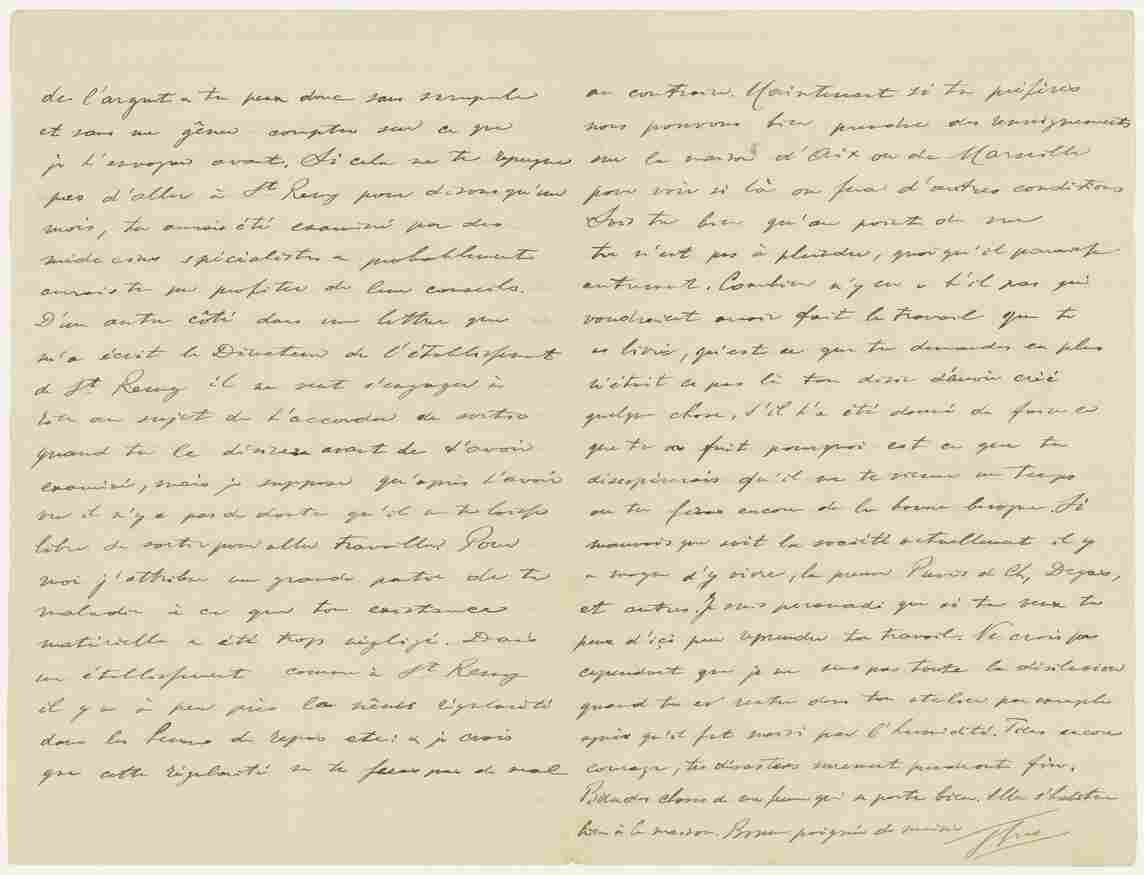 de l'argent & tu peux donc sans scrupule
et sans me gêner compter sur ce que
je t'envoyais avant. Si cela ne te repugne
pas d'aller à St Remy pour disons qu'un
mois, tu aurais été examiné par des
médecins spécialistes & probablement
aurais tu pu profiter de leur conseils.
D'un autre côté dans une lettre que
m'a écrit le Directeur de l'établissement
d St. Remy il ne veut s'engager à
rien au sujet de t'accorder de sortir
quand tu le désires avant de t'avoir
examiné, mais je suppose qu'après t'avoir
vu il n'y a pas de doute qu'il ne te laisse
libre de sortir pour aller travailler. Pour
moi j'attribue une grande partie de ta
maladie à ce que ton existence
matérielle a été trop négligé. Dans
un établissement comme à St Remy
il y a à peu près la même régularité
dans les heures de repas etc: & je crois
que cette régularité ne te feras pas de mal
au contraire. Maintenant si tu préfères
nous pouvons bien prendre des renseignements
sur la maison d'Aix ou de Marseille
pour voir si là on fera d'autres conditions
Sais tu bien qu'au point de vue
tu n'est pas à plaindre, quoiqu'il paraisse
autrement. Combien n'y en a t'il pas qui
voudraient avoir fait le travail que tu
as livré, qu'est ce que tu demandes en plus
n'était ce pas là ton désir d'avoir créé
quelque chose, s'il t'a été donné de faire ce
que tu as fait pourquoi est ce que tu
désespérerais qu'il ne te vienne un temps
ou tu feras encore de la bonne besogne. Si
mauvais que soit la société actuellement il y
a moyen d'y vivre, la preuve Puvis d Ch, Degas,
et autres. Je suis persuadé que si tu veux tu
peux d'içi peu reprendre ton travail. Ne crois pas
cependant que je ne sens pas toute la désilusion
quand tu es rentré dans ton atelier par exemple
après qu'il fut moisi par l'humidité. Mais encore
courage, tes désastres surement prendront fin.
Bien des choses de ma femme qui se porte bien. Elle s'habitue
bien à la maison. Bonne poignée de mains